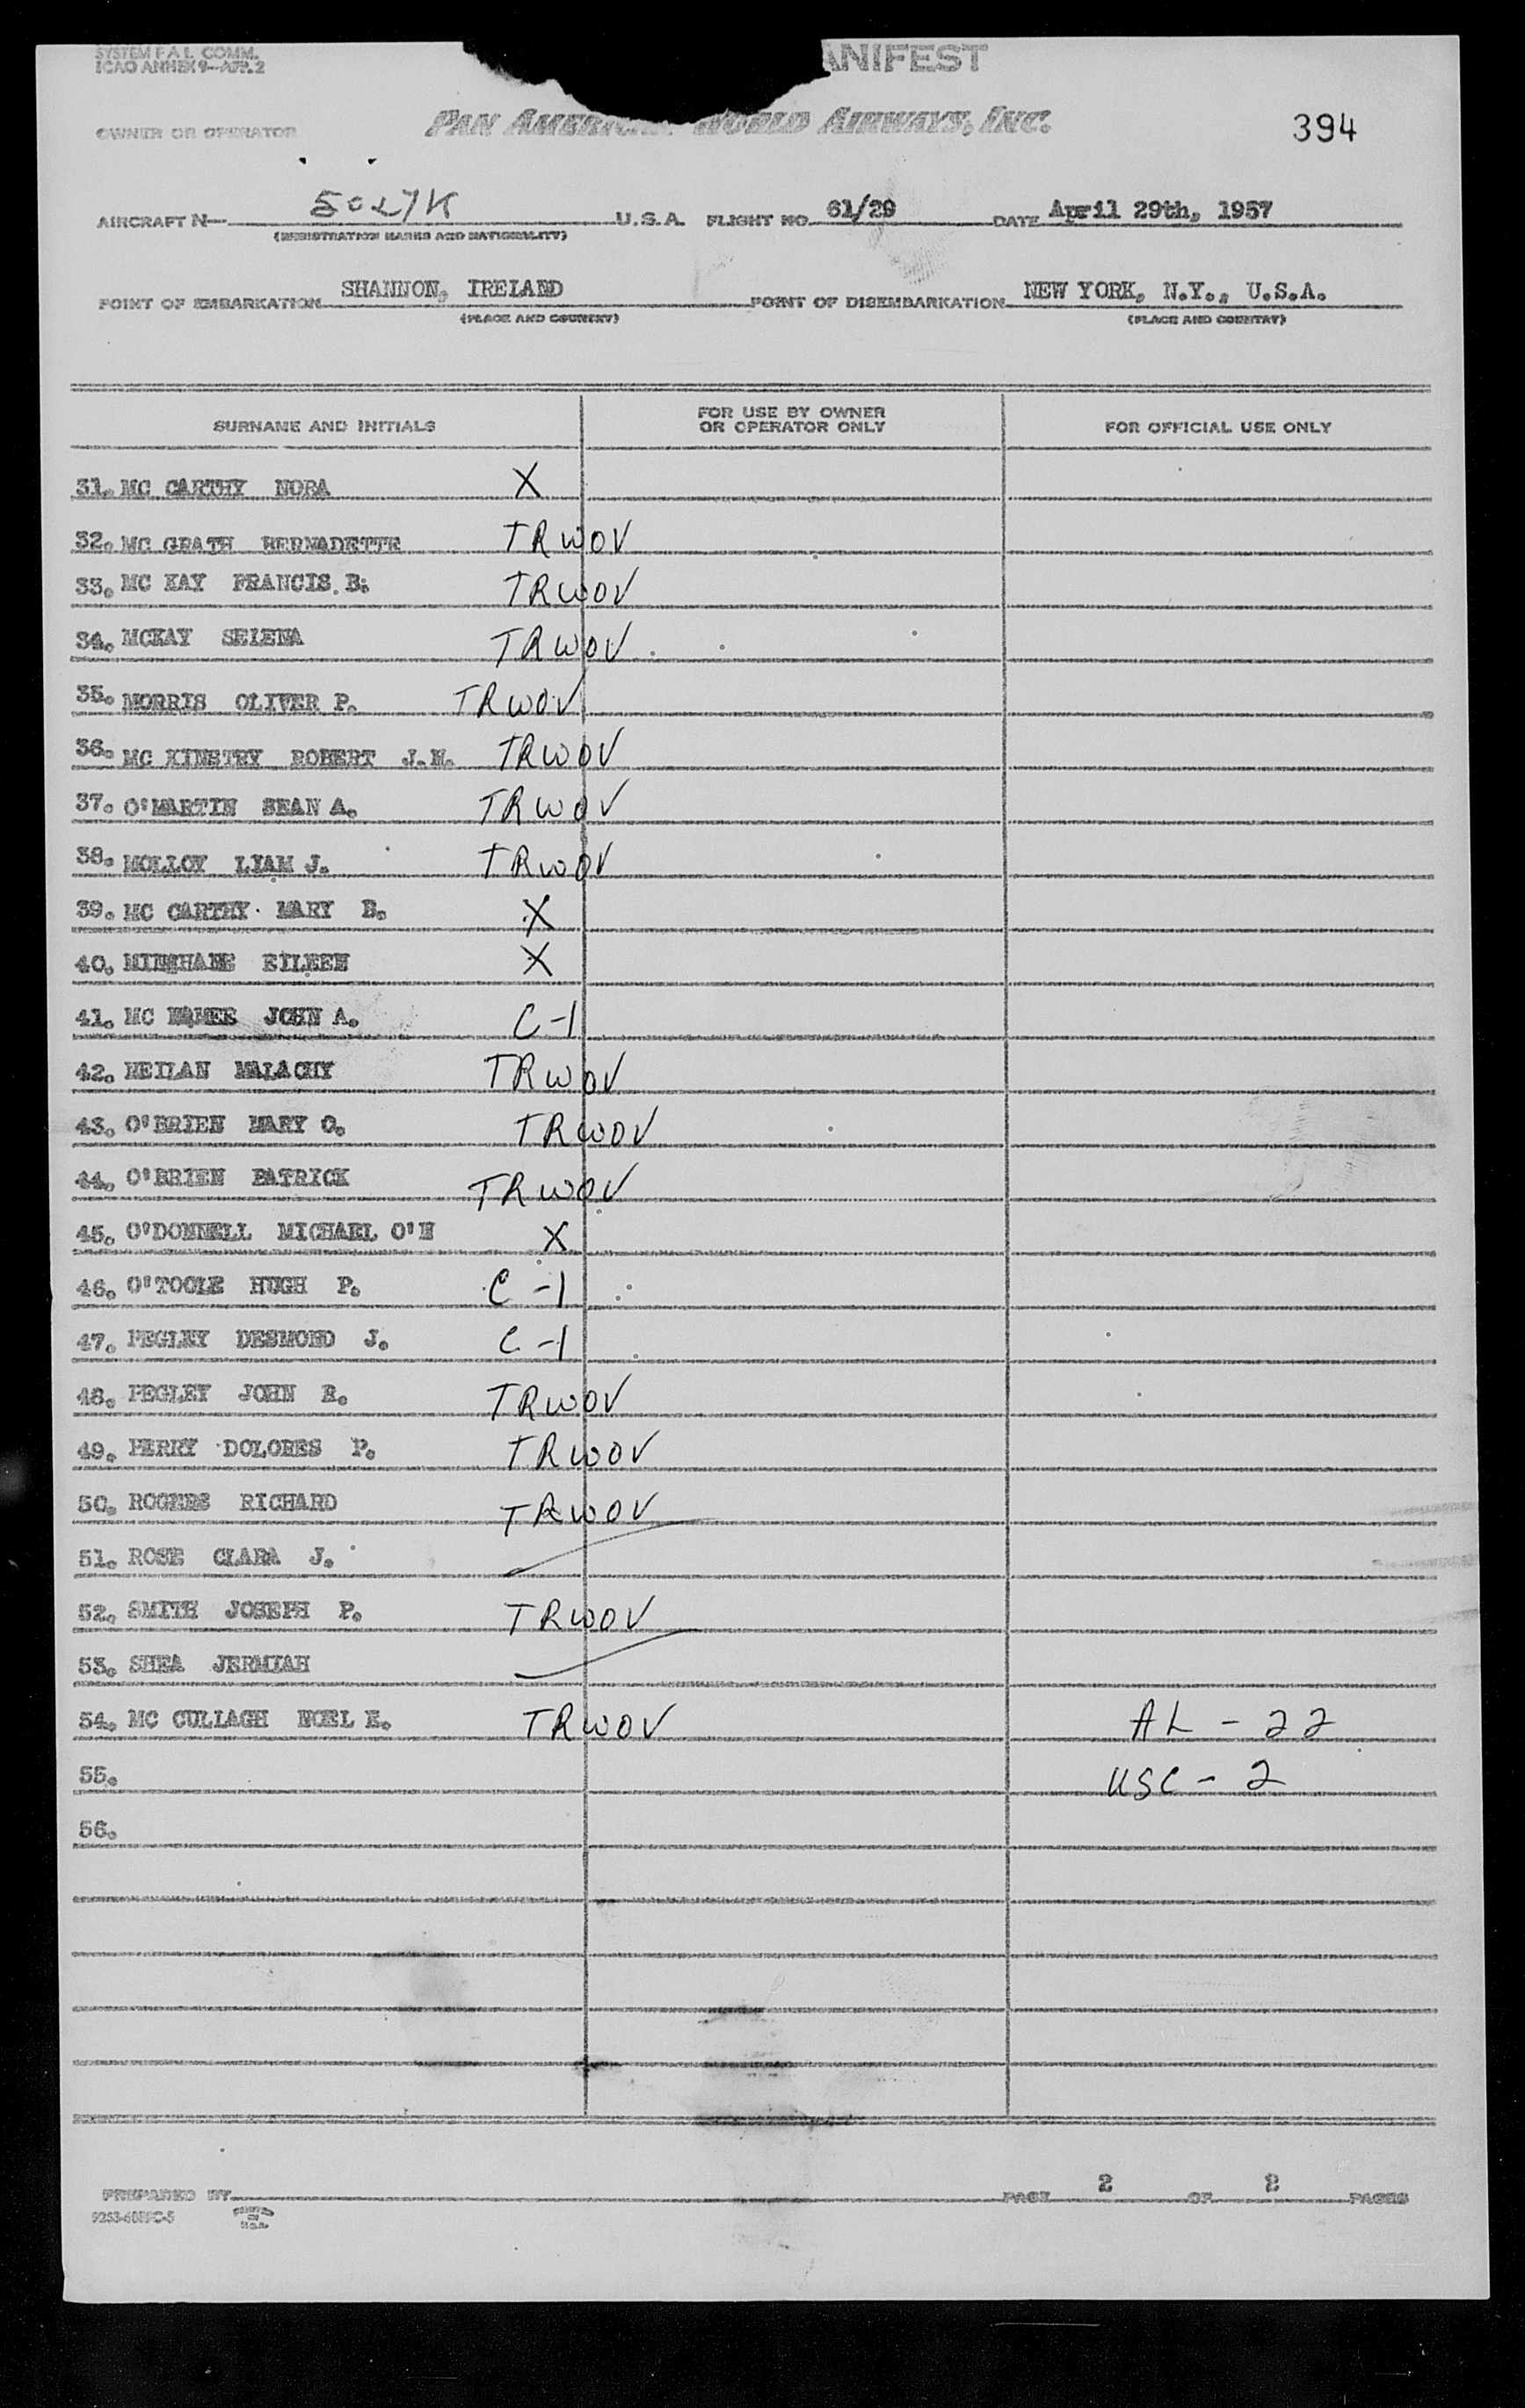 SYSTEM F A L COMM.
ICAO ANNEX 9-APP.2
ANIFEST
OWNER OR OPERATOR
PAN AMERIC WORLD AIRWAYS, INC.
394
AIRCRAFT N- 5027K U.S.A. FLIGHT NO. 61/29 DATE April 29th, 1957
(REGISTRATION MARKS AND NATIONALITY)
POINT OF EMBARKATION SHANNON, IRELAND POINT OF DISEMBARKATION NEW YORK, N.Y., U.S.A.
(PLACE AND COUNTRY) (PLACE AND COUNTRY)
SURNAME AND INITIALS
FOR USE BY OWNER
OR OPERATOR ONLY
FOR OFFICIAL USE ONLY
31. MC CARTHY NORA X
32. MC GRATH BERNADETTE TRWOV
33. MC KAY FRANCIS. B. TRWOV
34. MCKAY SELENA TRWOV
35. MORRIS OLIVER P. TRWOV
36. MC KINSTRY ROBERT J.N. TRWOV
37. O'MARTIN SEAN A. TRWOV
38. MOLLOY LIAM J. TRWOV
39. MC CARTHY MARY B. X
40. MINIHANE EILEEN X
41. MC JOHN A. C-1
42. NEILAN MALACHY TRWOV
43. O'BRIEN MARY C. TRWOV
44. O'BRIEN PATRICK TRWOV
45. O'DONNELL MICHAEL O'H X
46. O'TOOLE HUGH P. C-1
47. PEGLEY DESMOND J. C-1
48. PEGLEY JOHN E. TRWOV
49. PERRY DOLORES P. TRWOV
50. ROGERS RICHARD TRWOV
51. ROSE CLARA J.
52. SMITH JOSEPH P. TRWOV
53. SHEA JERMIAH
54. MC CULLAGH NOEL E. TRWOV AL - 22
55. USC - 2
56.
PREPARED BY PAGE 2 OF 2 PAGES